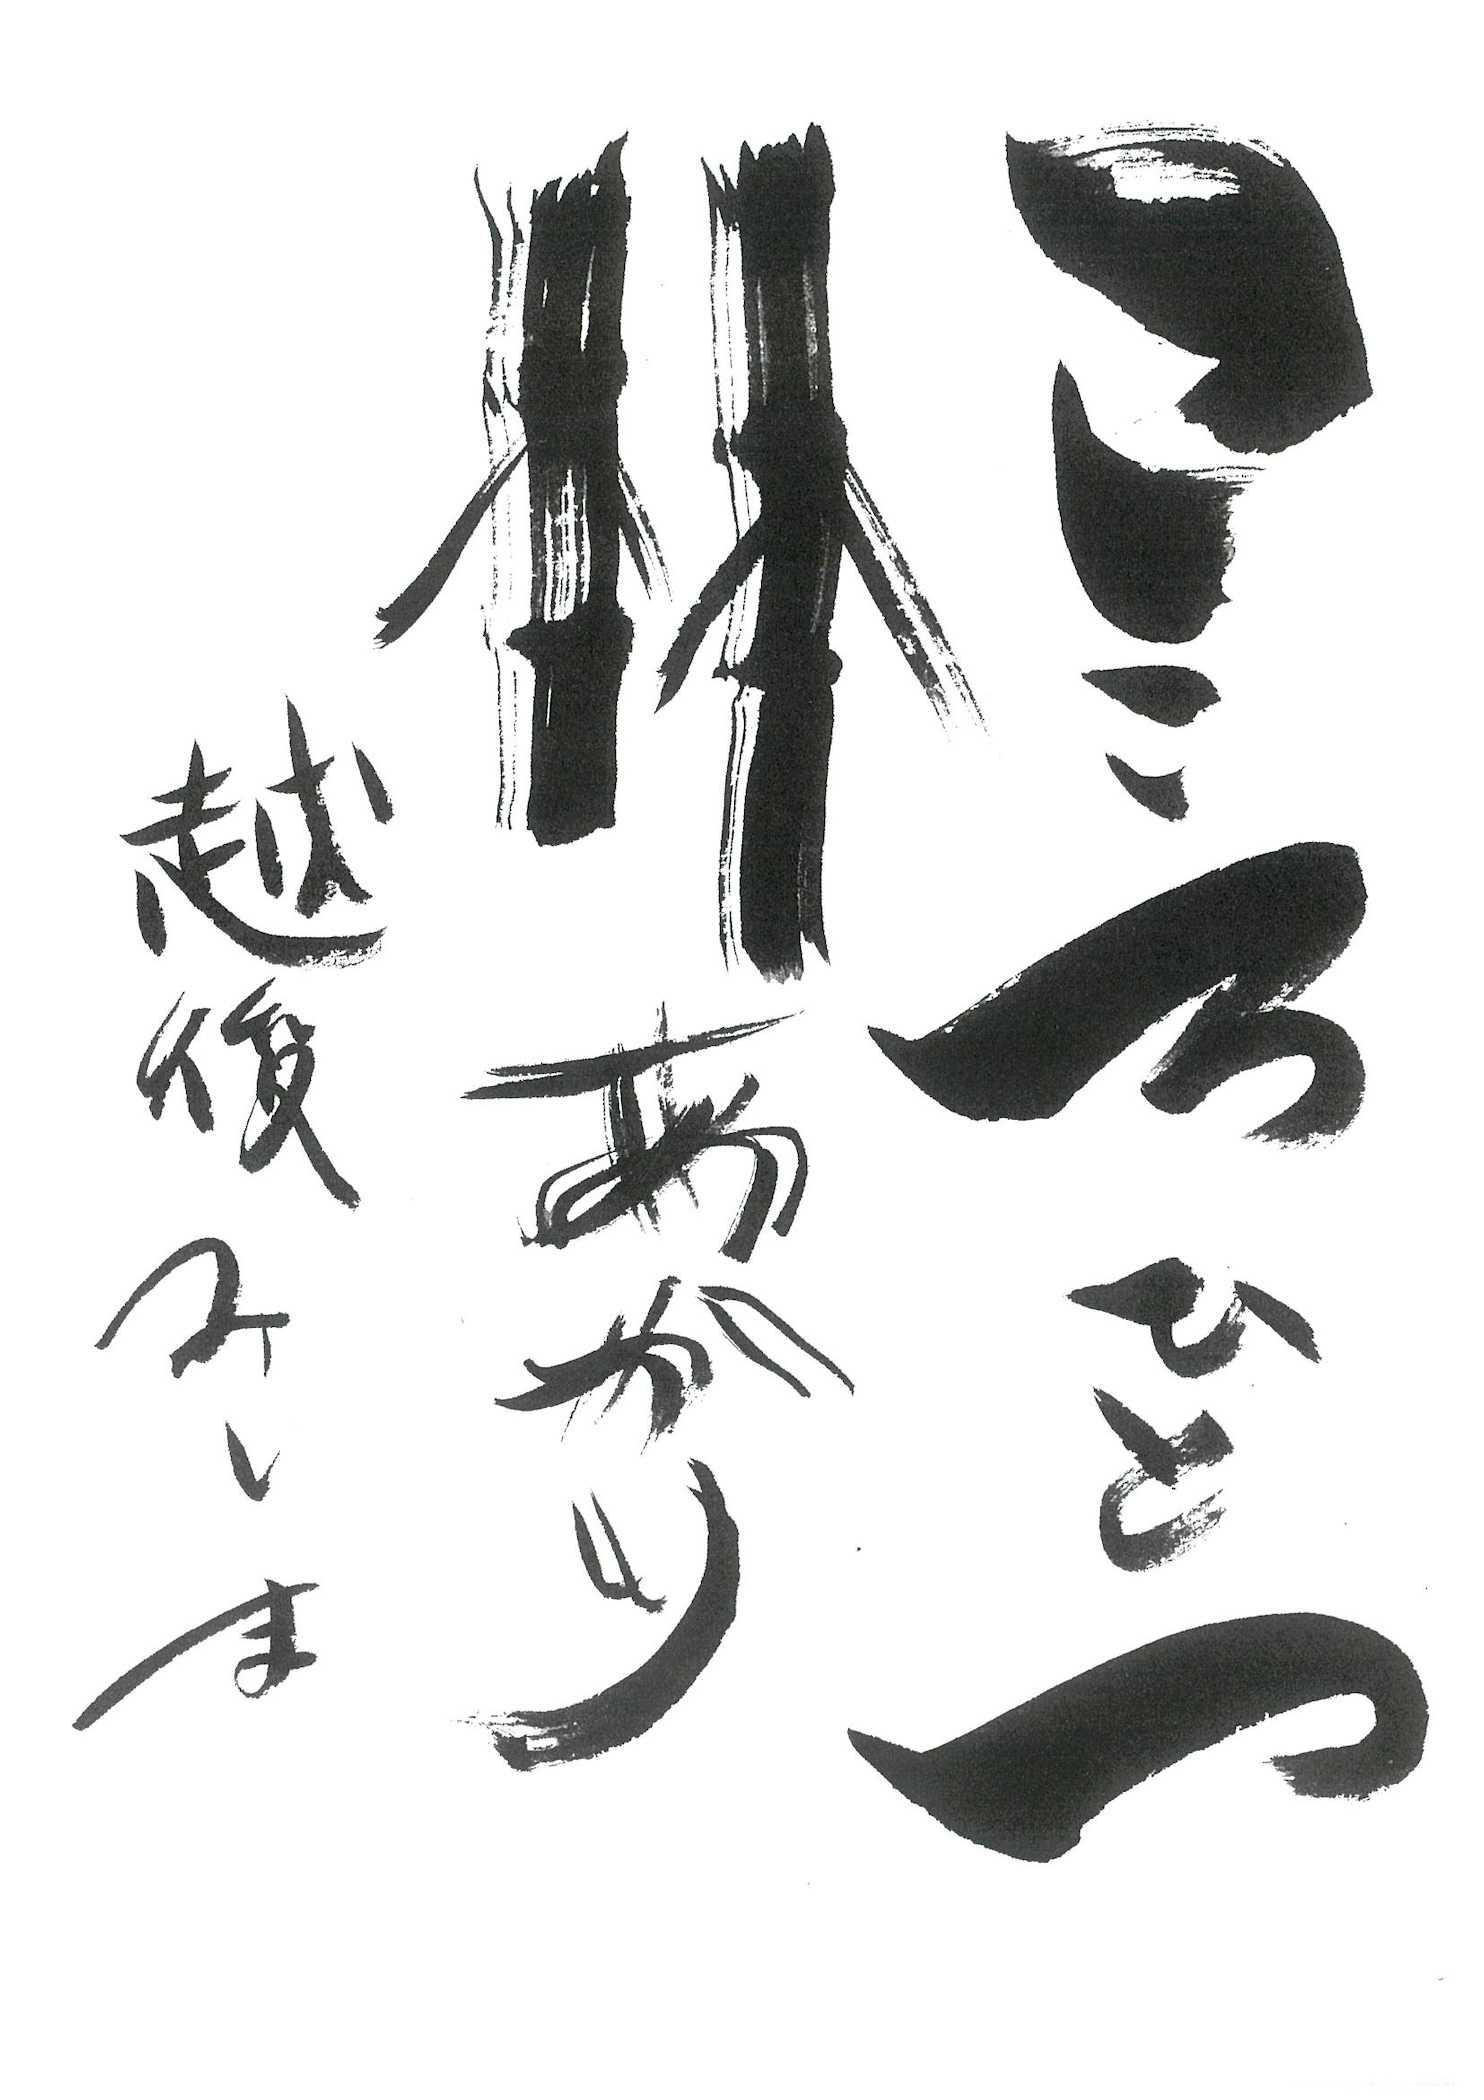 こころひとつ
竹あかり
越後みしま